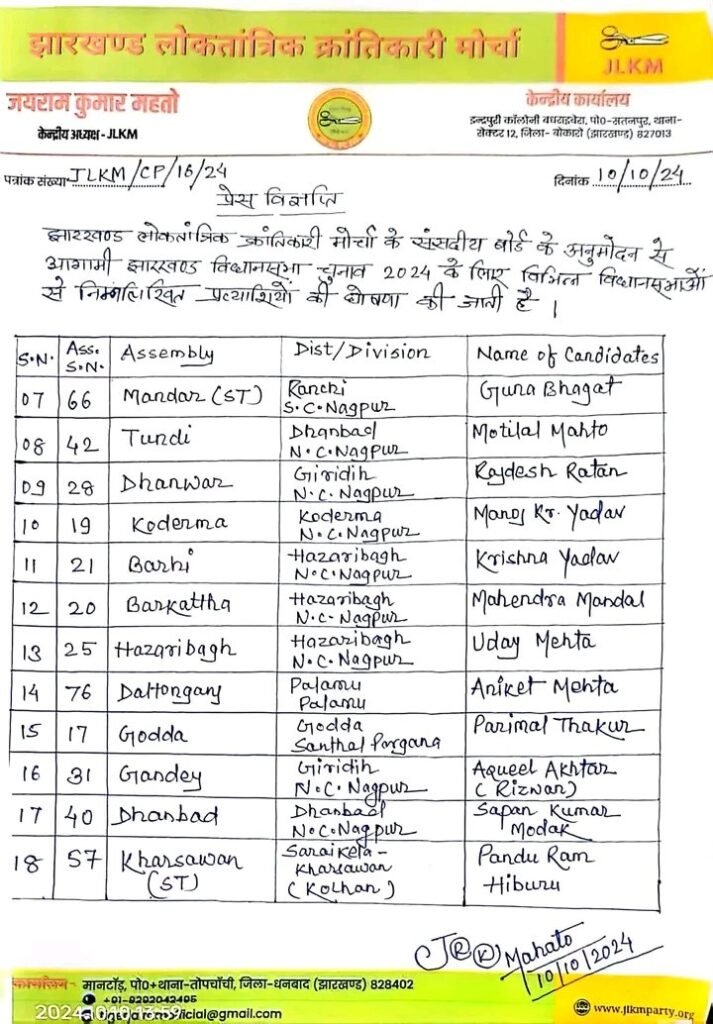 झारखण्ड लोकतांत्रिक क्रांतिकारी मोर्चा
JLKM
जयराम कुमार महतो
केन्द्रीय अध्यक्ष - JLKM
केन्द्रीय कार्यालय
इन्द्रपुरी कॉलोनी बधराइबेरा, पो०-सतनपुर, थाना-
सेक्टर 12, जिला- बोकारो (झारखण्ड) 827013
पत्रांक संख्या JLKM/CP/16/24
दिनांक 10/10/24
प्रेस विज्ञप्ति
झारखण्ड लोकतांत्रिक क्रांतिकारी मोर्चा के संसदीय बोर्ड के अनुमोदन से
आगामी झारखण्ड विधानसभा चुनाव 2024 के लिए विभिन्न विधानसभाओं
से निम्नलिखित प्रत्याशियों की घोषणा की जाती है ।
S.N. Ass. S.N. Assembly Dist/Division Name of Candidates
07 66 Mandar (ST) Ranchi S.C.Nagpur Guna Bhagat
08 42 Tundi Dhanbad N.C.Nagpur Motilal Mahto
09 28 Dhanwar Giridih N.C.Nagpur Rajdesh Ratan
10 19 Koderma Koderma N.C.Nagpur Manoj Kr. Yadav
11 21 Barhi Hazaribagh N.C.Nagpur Krishna Yadav
12 20 Barkattha Hazaribagh N.C.Nagpur Mahendra Mandal
13 25 Hazaribagh Hazaribagh N.C.Nagpur Uday Mehta
14 76 Daltonganj Palamu Palamu Aniket Mehta
15 17 Godda Godda Santhal Pargana Parimal Thakur
16 31 Gandey Giridih N.C.Nagpur Aqueel Akhtar (Rizwan)
17 40 Dhanbad Dhanbad N.C.Nagpur Sapan Kumar Modak
18 57 Kharsawan (ST) Saraikela- Kharsawan (Kolhan) Pandu Ram Hiburu
JRK Mahato
10/10/2024
कार्यालय - मानटॉड़, पो०+थाना-तोपचाँची, जिला-धनबाद (झारखण्ड) 828402
+91-9292042495
www.jlkmparty.org